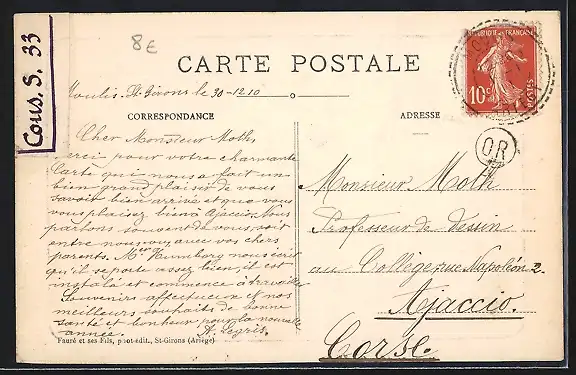 Cons. S. 33
8€
CARTE POSTALE
Moulis. St. Girons le 30-12 10
CORRESPONDANCE
ADRESSE
REPUBLIQUE FRANÇAISE
10c
POSTES
OR
Cher Monsieur Moth,
erci pour votre charmante
Carte qui nous a fait un
bien grand plaisir de vous
savoir bien arrivé et que vous
vous plaisez bien à Ajaccio. Nous
parlons souvent de vous, soit
entre nous ou avec vos chers
parents. Mr nous écrit
qu'il se porte assez bien, il est
instalé et commence à travailler
Souvenirs affectueux et nos
meilleurs souhaits de bonne
santé et bonheur pour la nouvelle
année. A. Legris.
Monsieur Moth
Professeur de Dessin
au Collège, rue Napoléon 2.
Ajaccio.
Corse
Fauré et ses Fils, phot-édit., St-Girons (Ariège)